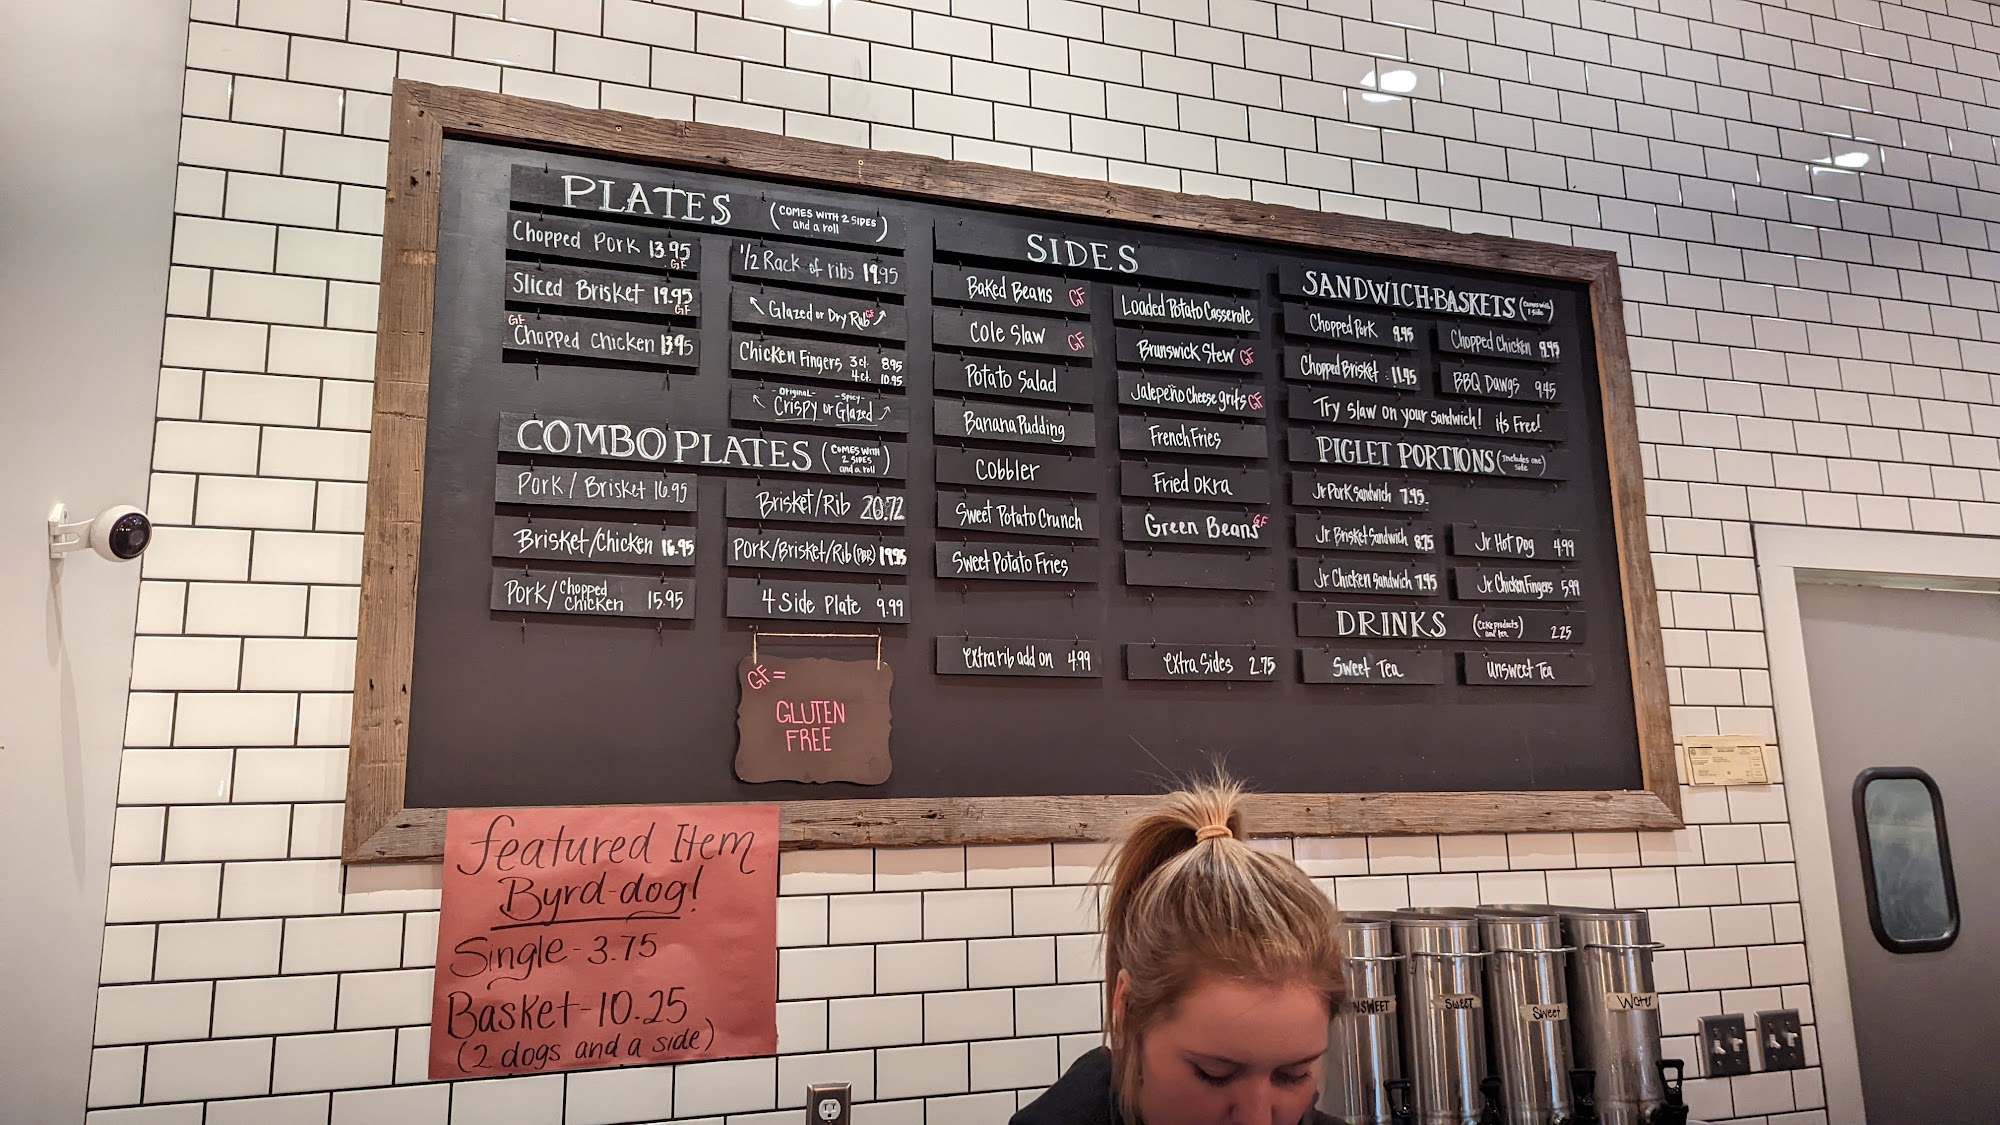 PLATES (COMES WITH 2 SIDES
and a roll)
Chopped Pork 13.95
GF
Sliced Brisket 19.95
GF
GF
Chopped Chicken 13.95
1/2 Rack of ribs 19.95
Glazed or Dry Rub GF
Chicken Fingers 3 ct. 8.95
4 ct. 10.95
-Original- -Spicy-
Crispy or Glazed
COMBO PLATES (COMES WITH
2 SIDES
and a roll)
Pork / Brisket 16.95
Brisket/Chicken 16.95
Pork/Chopped
Chicken 15.95
Brisket/Rib 20.72
Pork/Brisket/Rib (PBR) 19.95
4 Side Plate 9.99
GF =
GLUTEN
FREE
SIDES
Baked Beans GF
Cole Slaw GF
Potato Salad
Banana Pudding
Cobbler
Sweet Potato Crunch
Sweet Potato Fries
Loaded Potato Casserole
Brunswick Stew GF
Jalapeño Cheese grits GF
French Fries
Fried Okra
Green Beans GF
Extra rib add on 4.99
Extra Sides 2.75
SANDWICH•BASKETS (Comes with
1 side)
Chopped Pork 9.95
Chopped Chicken 9.95
Chopped Brisket 11.95
BBQ Dawgs 9.45
Try slaw on your sandwich! its Free!
PIGLET PORTIONS (includes one
side)
Jr Pork Sandwich 7.95
Jr Brisket Sandwich 8.75
Jr. Hot Dog 4.99
Jr Chicken Sandwich 7.95
Jr. Chicken Fingers 5.99
DRINKS (Coke products
and tea) 2.25
Sweet Tea
Unsweet Tea
Featured Item
Byrd-dog!
Single - 3.75
Basket - 10.25
(2 dogs and a side)
SWEET
Sweet
Water